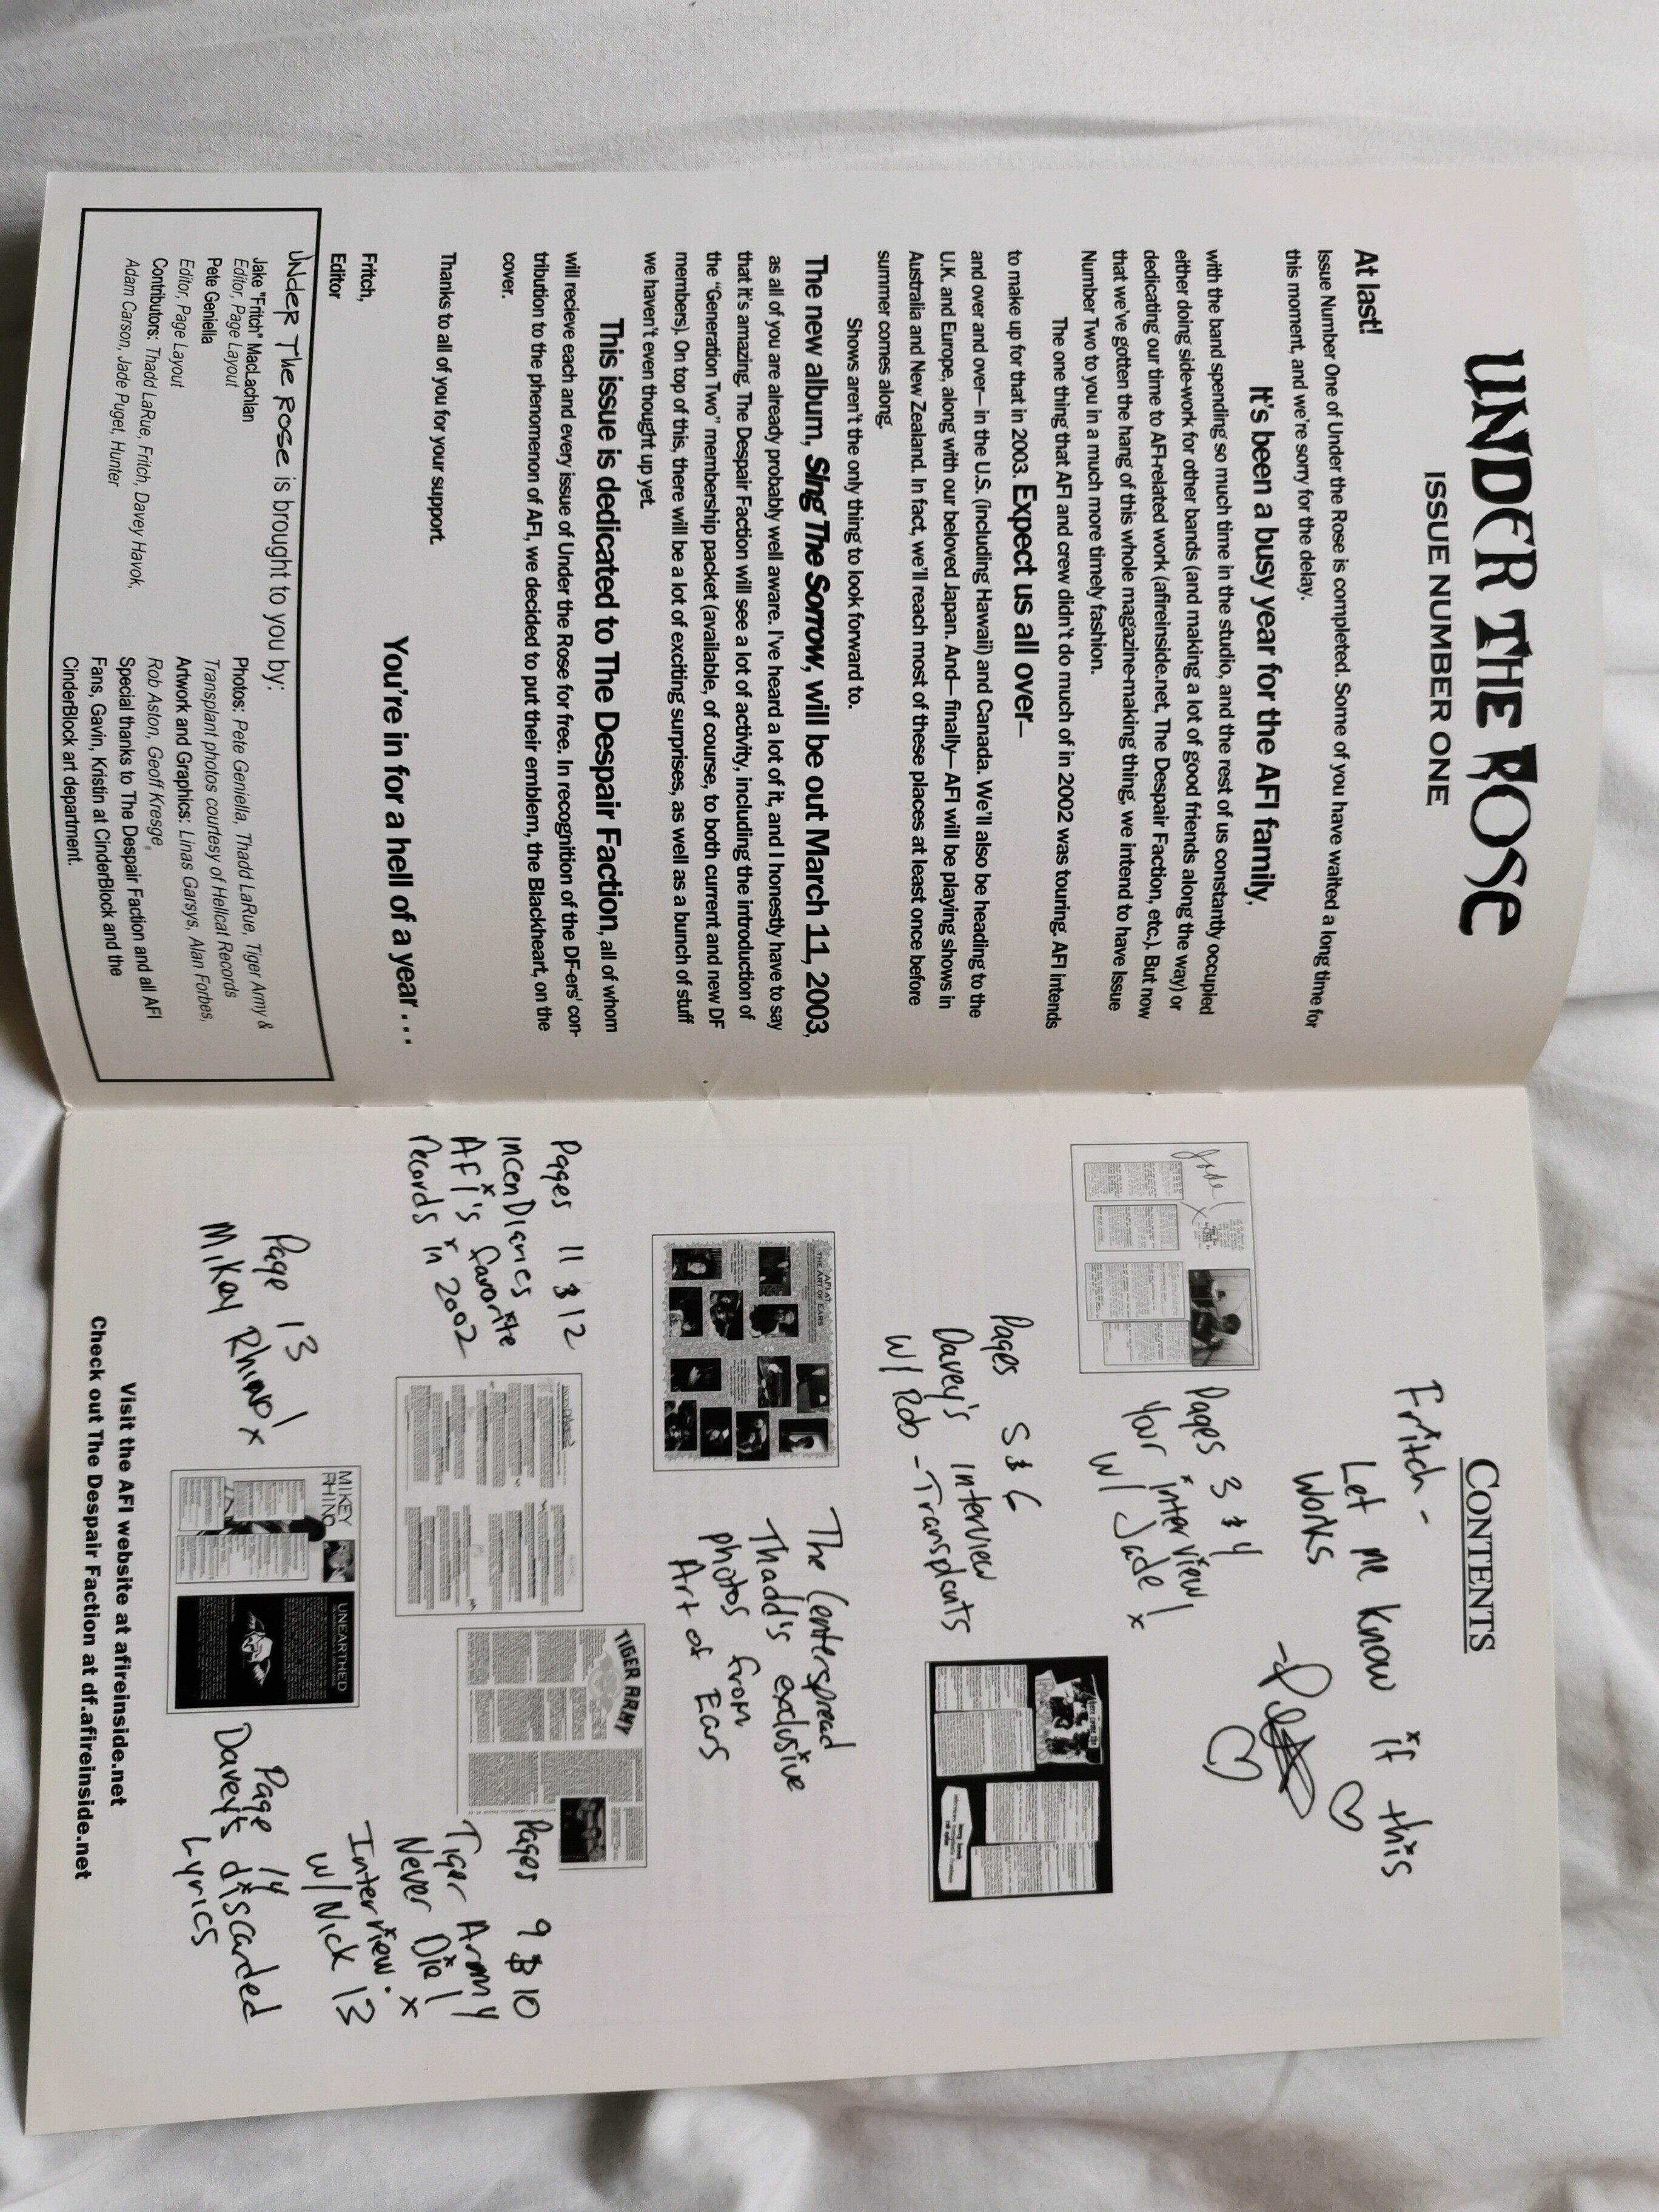 UNDER THE ROSE
ISSUE NUMBER ONE
At last!
Issue Number One of Under the Rose is completed. Some of you have waited a long time for
this moment, and we're sorry for the delay.
It's been a busy year for the AFI family,
with the band spending so much time in the studio, and the rest of us constantly occupied
either doing side-work for other bands (and making a lot of good friends along the way) or
dedicating our time to AFI-related work (afireinside.net, The Despair Faction, etc.). But now
that we've gotten the hang of this whole magazine-making thing, we intend to have Issue
Number Two to you in a much more timely fashion.
The one thing that AFI and crew didn't do much of in 2002 was touring. AFI intends
to make up for that in 2003. Expect us all over—
and over and over— in the U.S. (including Hawaii) and Canada. We'll also be heading to the
U.K. and Europe, along with our beloved Japan. And— finally— AFI will be playing shows in
Australia and New Zealand. In fact, we'll reach most of these places at least once before
summer comes along.
Shows aren't the only thing to look forward to.
The new album, Sing The Sorrow, will be out March 11, 2003,
as all of you are already probably well aware. I've heard a lot of it, and I honestly have to say
that it's amazing. The Despair Faction will see a lot of activity, including the introduction of
the "Generation Two" membership packet (available, of course, to both current and new DF
members). On top of this, there will be a lot of exciting surprises, as well as a bunch of stuff
we haven't even thought up yet.
This issue is dedicated to The Despair Faction, all of whom
will recieve each and every issue of Under the Rose for free. In recognition of the DF-ers' con-
tribution to the phenomenon of AFI, we decided to put their emblem, the Blackheart, on the
cover.
Thanks to all of you for your support.
You're in for a hell of a year . . .
Fritch,
Editor
UNDER THE ROSE is brought to you by:
Jake "Fritch" MacLachlan
Editor, Page Layout
Pete Geniella
Editor, Page Layout
Contributors: Thadd LaRue, Fritch, Davey Havok,
Adam Carson, Jade Puget, Hunter
Photos: Pete Geniella, Thadd LaRue, Tiger Army &
Transplant photos courtesy of Hellcat Records
Artwork and Graphics: Linas Garsys, Alan Forbes,
Rob Aston, Geoff Kresge
Special thanks to The Despair Faction and all AFI
Fans, Gavin, Kristin at CinderBlock and the
CinderBlock art department.
CONTENTS
Fritch -
Let me know if this
works
Pages 3 & 4
Your interview!
w/ Jade!
Jade!
Pages 5 & 6
Davey's interview
w/ Rob - Transplants
The Centerspread
Thadd's exclusive
photos from
Art of Ears
AFI AT
THE ART OF EARS
Pages 11 & 12
IncenDiaries
AFI's favorite
records in 2002
TIGER ARMY
Pages 9 & 10
Tiger Army
Never Die!
Interview:
w/ Nick 13
Page 13
Mikey Rhino!
MIKEY
RHINO
UNEARTHED
Page 14
Davey's discarded
Lyrics
Visit the AFI website at afireinside.net
Check out The Despair Faction at df.afireinside.net